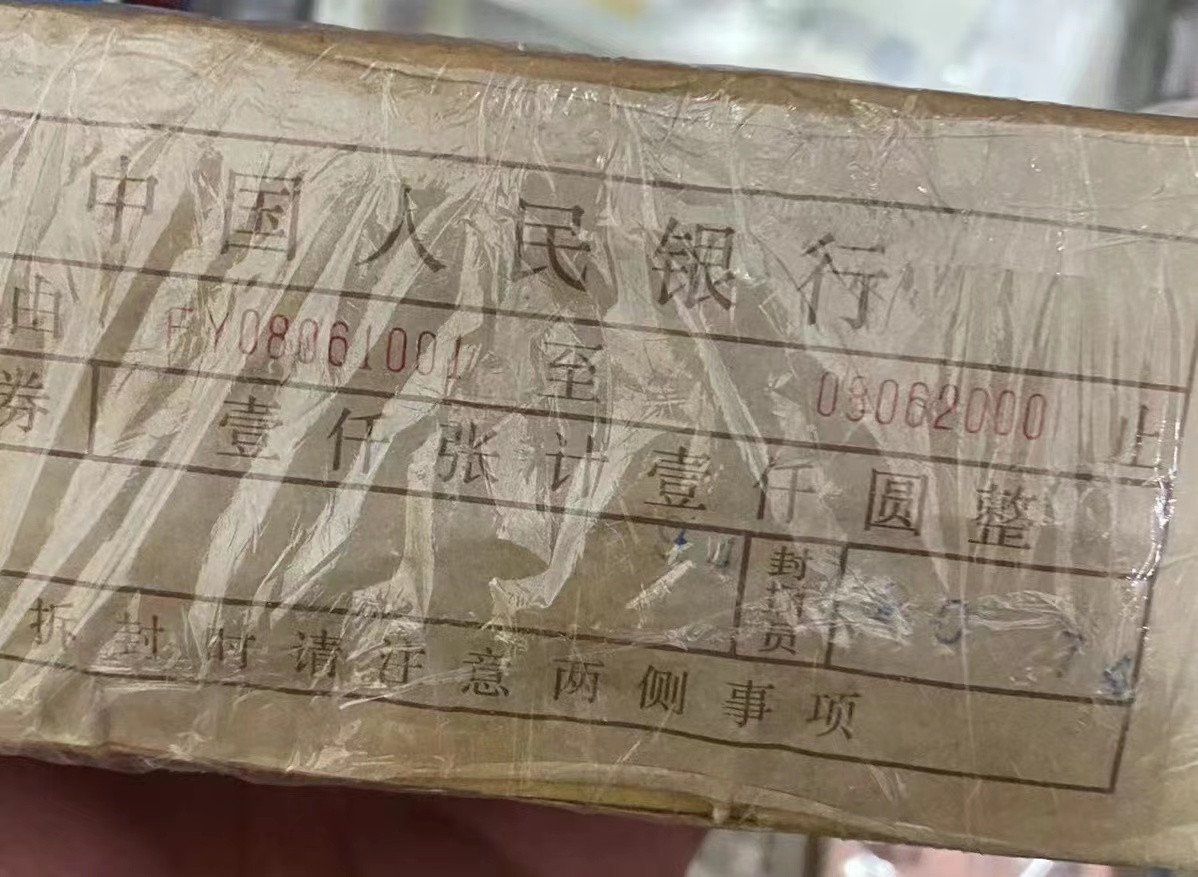 中国人民银行
由 FY08061001 至 08062000 止
券 壹仟张计壹仟圆整
封捆员
拆封时请注意两侧事项